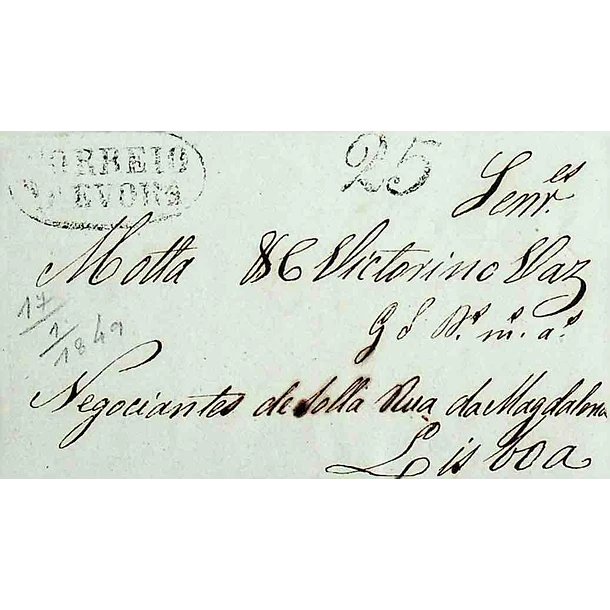 CORREIO
D'EVORA
25
Senr.es
Motta & C Victorino Vaz
G S N.s m.s a.s
17/1/1849
Negociantes de Solla Rua da Magdalena
Lisboa